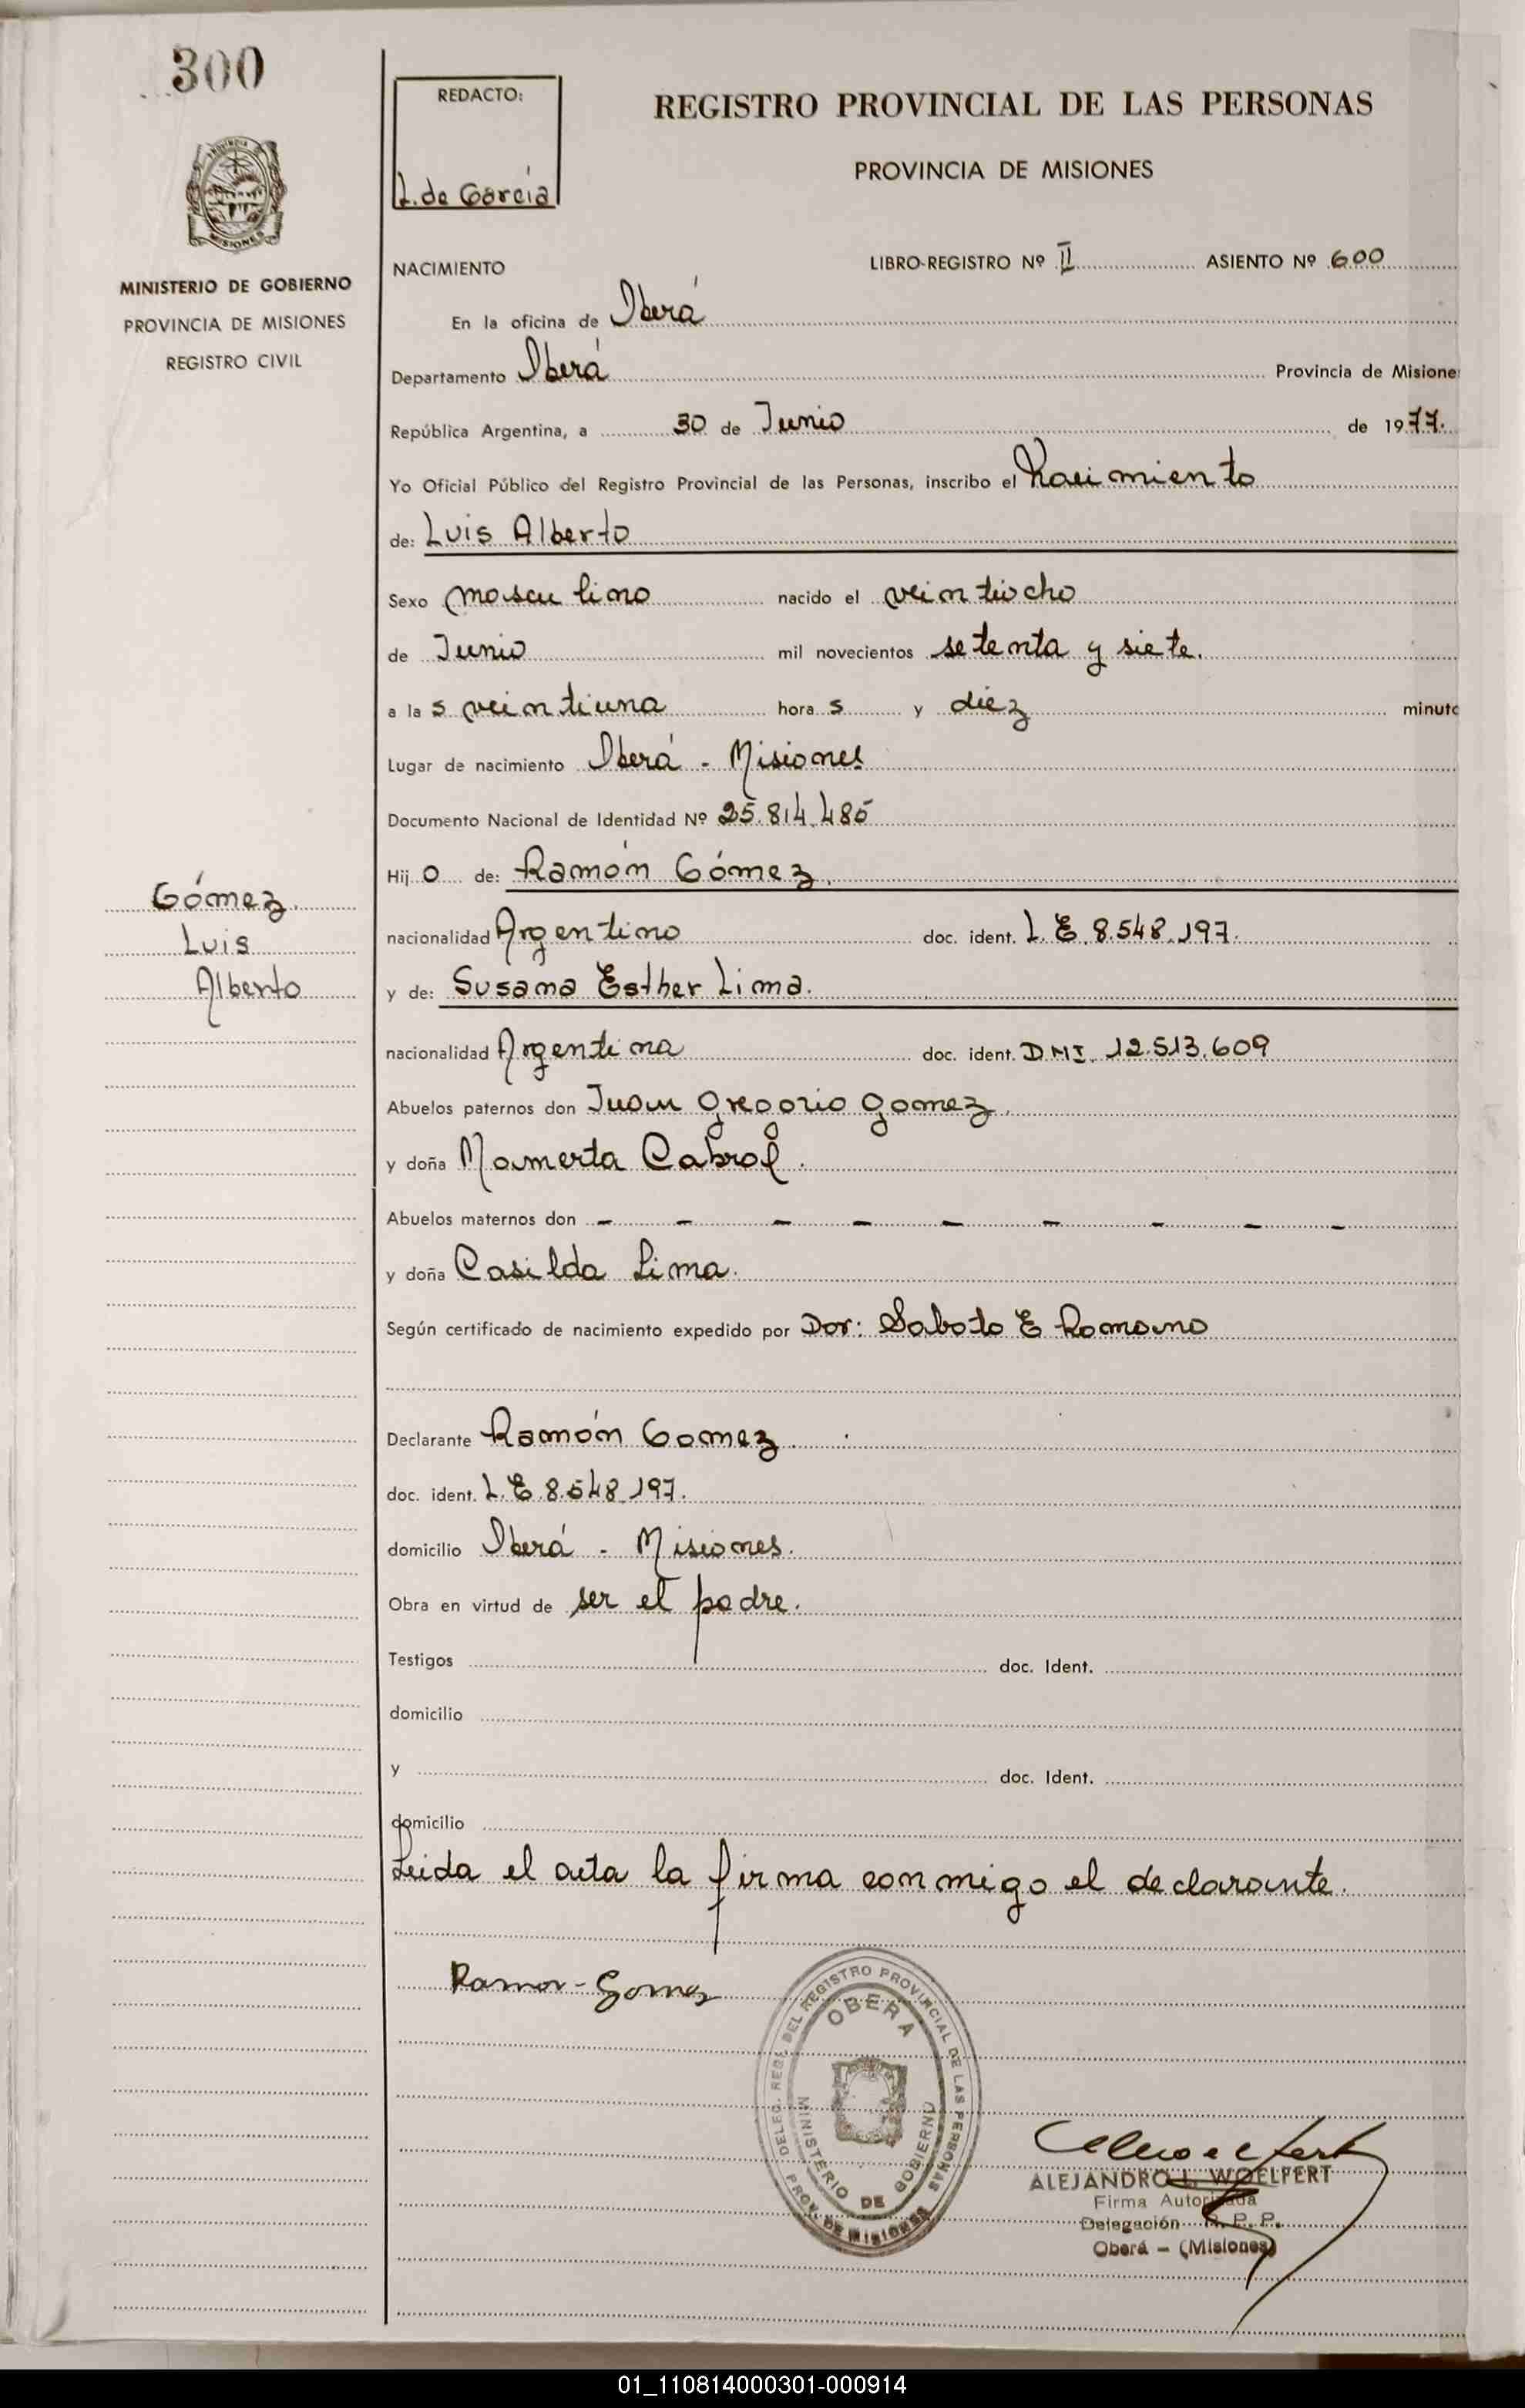 300
REDACTO:
L. de García
REGISTRO PROVINCIAL DE LAS PERSONAS
PROVINCIA DE MISIONES
PROVINCIA DE
MISIONES
MINISTERIO DE GOBIERNO
PROVINCIA DE MISIONES
REGISTRO CIVIL
NACIMIENTO
LIBRO-REGISTRO Nº II ASIENTO Nº 600
En la oficina de Oberá
Departamento Oberá Provincia de Misione
República Argentina, a 30 de Junio de 1977.
Yo Oficial Público del Registro Provincial de las Personas, inscribo el Nacimiento
de: Luis Alberto
Sexo masculino nacido el veintiocho
de Junio mil novecientos setenta y siete.
a la s veintiuna hora s y diez minuto
Lugar de nacimiento Oberá - Misiones
Documento Nacional de Identidad Nº 25.814.485
Hij o de: Ramón Gómez.
nacionalidad Argentino doc. ident. L.E. 8.548.197.
y de: Susana Esther Lima.
nacionalidad Argentina doc. ident. DNI. 12.513.609
Gómez.
Luis
Alberto
Abuelos paternos don Juan Gregorio Gomez.
y doña Mamerta Cabral.
Abuelos maternos don - - - - - - - - -
y doña Casilda Lima.
Según certificado de nacimiento expedido por Dor: Saboto E Romano
Declarante Ramón Gomez.
doc. ident. L.E 8.548.197.
domicilio Oberá - Misiones.
Obra en virtud de ser el padre.
Testigos doc. Ident.
domicilio
y doc. Ident.
domicilio
Leida el acta la firma conmigo el declarante.
Ramon-Gomez
DELEG. REG. DEL REGISTRO PROVINCIAL DE LAS PERSONAS
OBERA
MINISTERIO DE GOBIERNO
PROV. DE MISIONES
ALEJANDRO L. WOELFERT
Firma Autorizada
Delegación R. P. P.
Oberá - (Misiones)
01_110814000301-000914